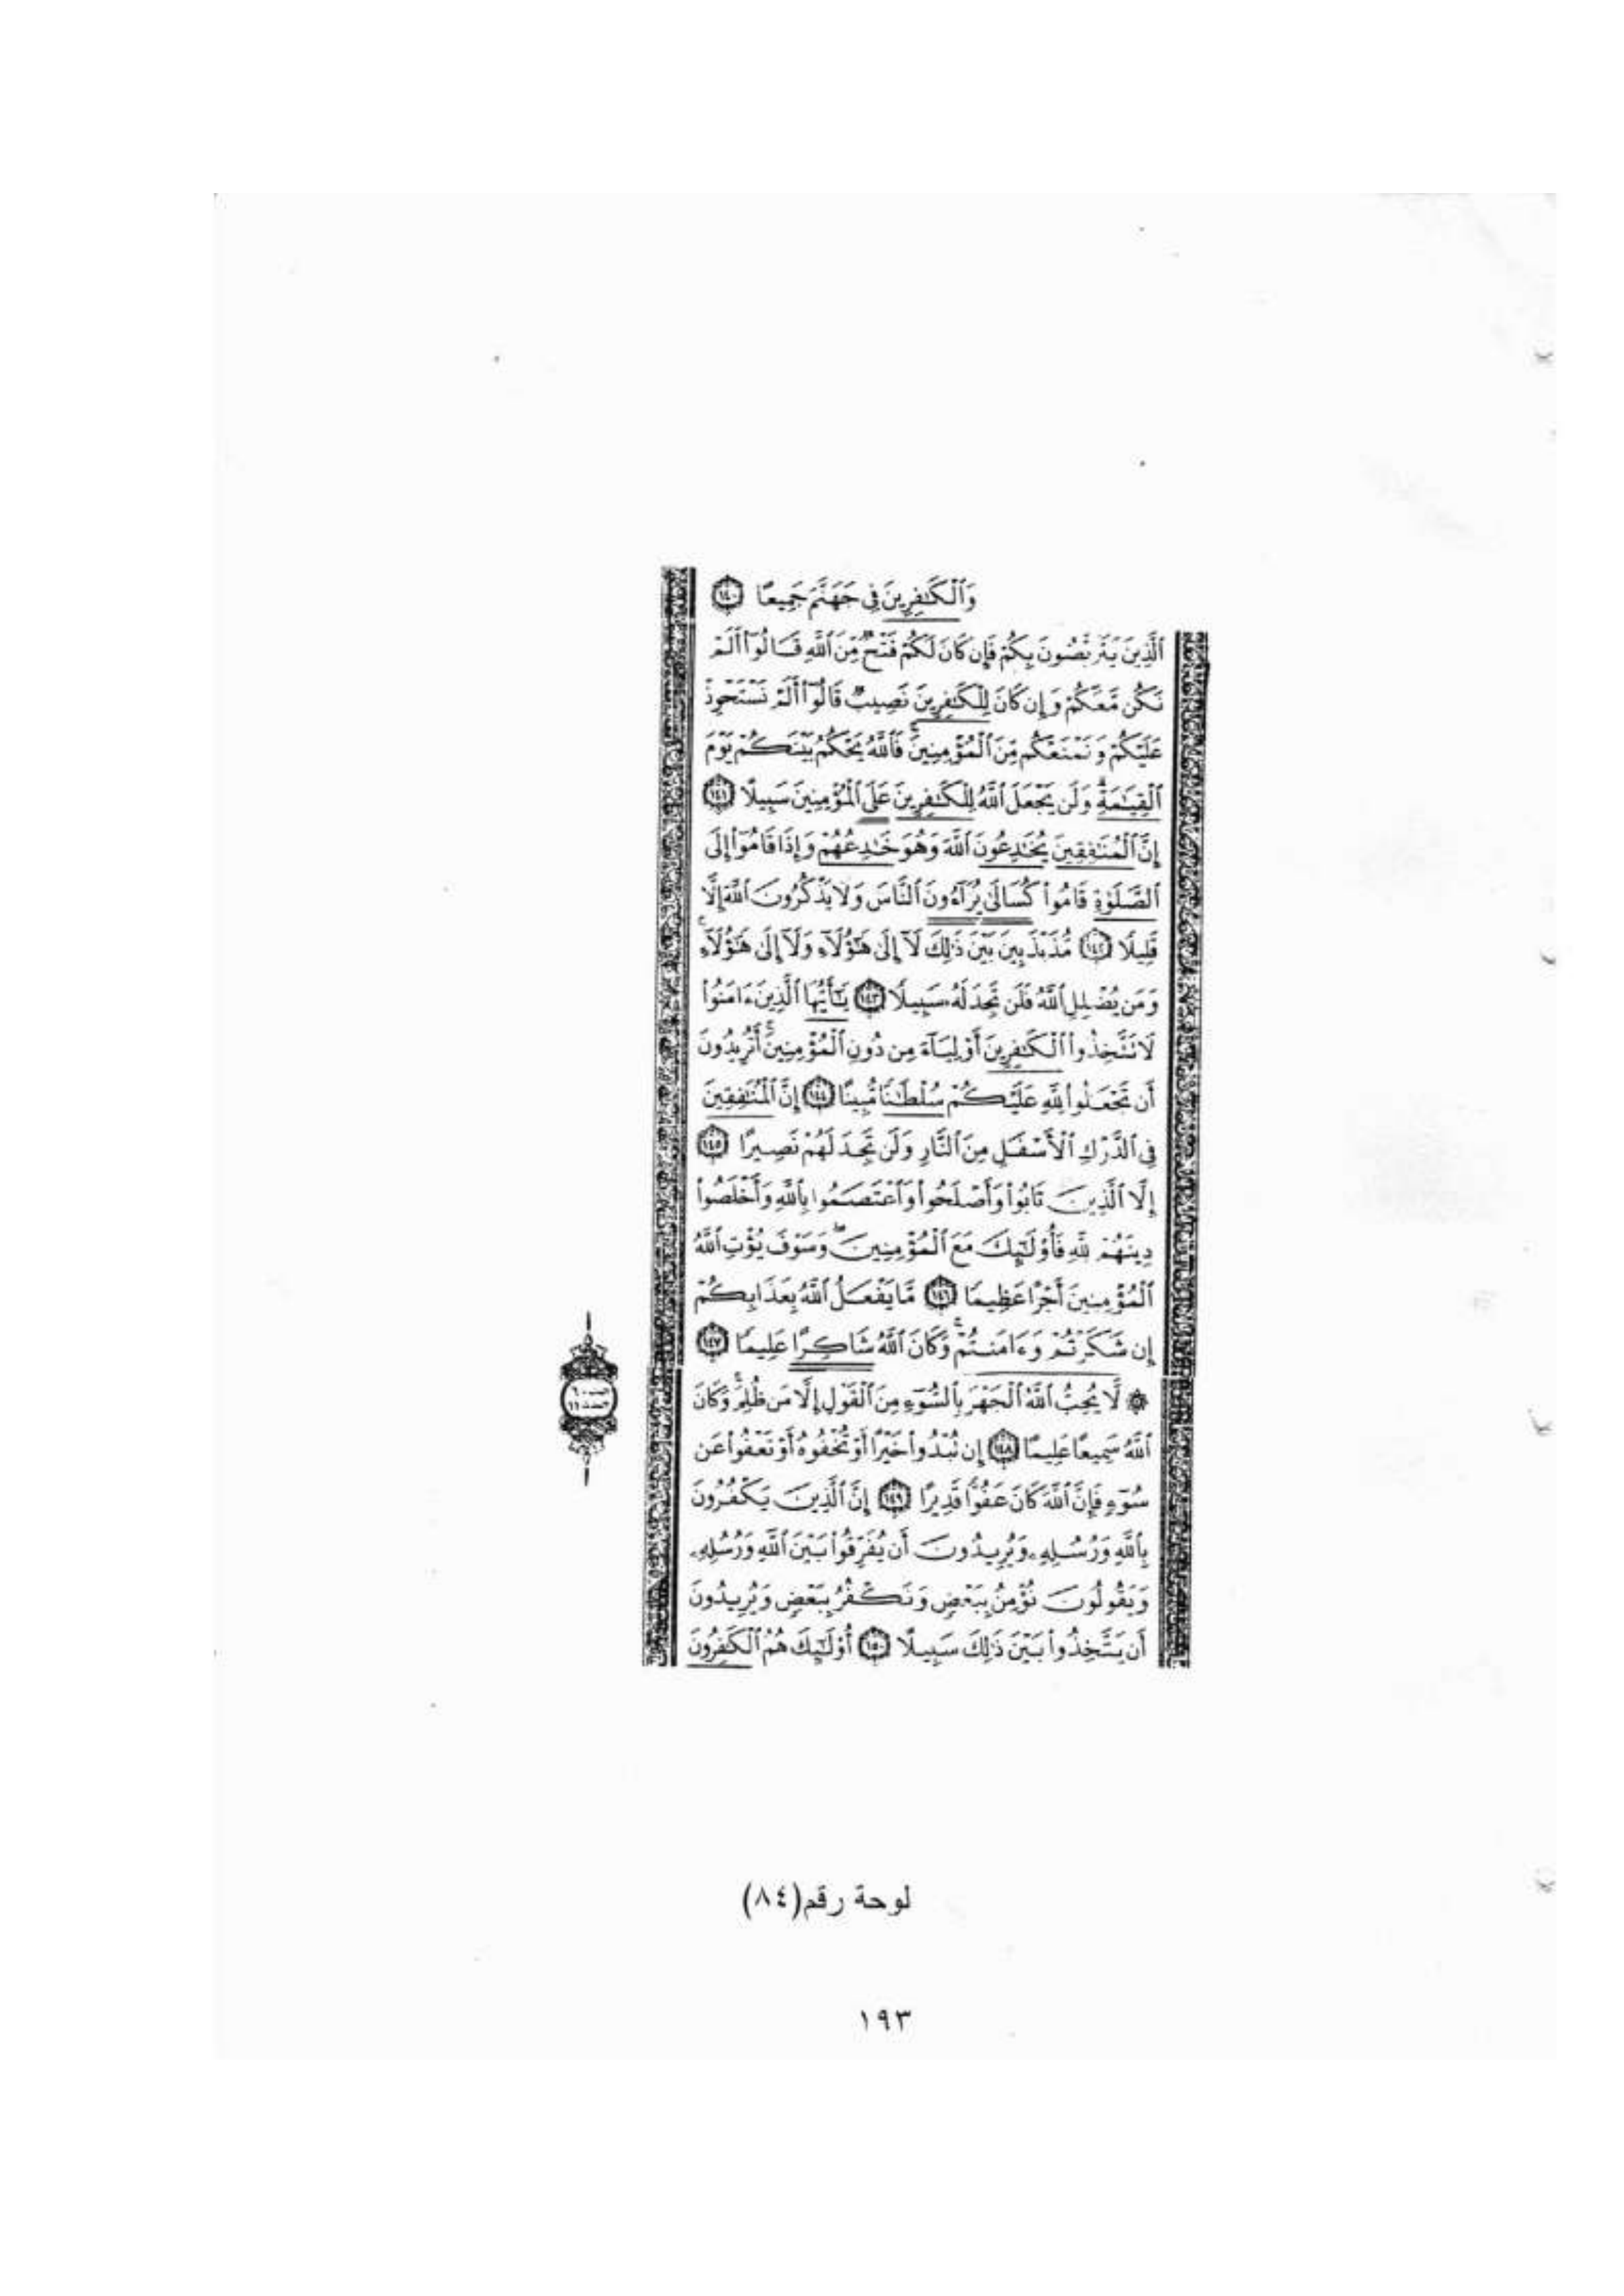 وَٱلْكَٰفِرِينَ فِى جَهَنَّمَ جَمِيعًا ١٤٠
ٱلَّذِينَ يَتَرَبَّصُونَ بِكُمْ فَإِن كَانَ لَكُمْ فَتْحٌ مِّنَ ٱللَّهِ قَالُوٓا۟ أَلَمْ
نَكُن مَّعَكُمْ وَإِن كَانَ لِلْكَٰفِرِينَ نَصِيبٌ قَالُوٓا۟ أَلَمْ نَسْتَحْوِذْ
عَلَيْكُمْ وَنَمْنَعْكُم مِّنَ ٱلْمُؤْمِنِينَ ۚ فَٱللَّهُ يَحْكُمُ بَيْنَكُمْ يَوْمَ
ٱلْقِيَٰمَةِ ۗ وَلَن يَجْعَلَ ٱللَّهُ لِلْكَٰفِرِينَ عَلَى ٱلْمُؤْمِنِينَ سَبِيلًا ١٤١
إِنَّ ٱلْمُنَٰفِقِينَ يُخَٰدِعُونَ ٱللَّهَ وَهُوَ خَٰدِعُهُمْ وَإِذَا قَامُوٓا۟ إِلَى
ٱلصَّلَوٰةِ قَامُوا۟ كُسَالَىٰ يُرَآءُونَ ٱلنَّاسَ وَلَا يَذْكُرُونَ ٱللَّهَ إِلَّا
قَلِيلًا ١٤٢ مُّذَبْذَبِينَ بَيْنَ ذَٰلِكَ لَآ إِلَىٰ هَٰٓؤُلَآءِ وَلَآ إِلَىٰ هَٰٓؤُلَآءِ ۚ
وَمَن يُضْلِلِ ٱللَّهُ فَلَن تَجِدَ لَهُۥ سَبِيلًا ١٤٣ يَٰٓأَيُّهَا ٱلَّذِينَ ءَامَنُوا۟
لَا تَتَّخِذُوا۟ ٱلْكَٰفِرِينَ أَوْلِيَآءَ مِن دُونِ ٱلْمُؤْمِنِينَ ۚ أَتُرِيدُونَ
أَن تَجْعَلُوا۟ لِلَّهِ عَلَيْكُمْ سُلْطَٰنًا مُّبِينًا ١٤٤ إِنَّ ٱلْمُنَٰفِقِينَ
فِى ٱلدَّرْكِ ٱلْأَسْفَلِ مِنَ ٱلنَّارِ وَلَن تَجِدَ لَهُمْ نَصِيرًا ١٤٥
إِلَّا ٱلَّذِينَ تَابُوا۟ وَأَصْلَحُوا۟ وَٱعْتَصَمُوا۟ بِٱللَّهِ وَأَخْلَصُوا۟
دِينَهُمْ لِلَّهِ فَأُو۟لَٰٓئِكَ مَعَ ٱلْمُؤْمِنِينَ ۖ وَسَوْفَ يُؤْتِ ٱللَّهُ
ٱلْمُؤْمِنِينَ أَجْرًا عَظِيمًا ١٤٦ مَّا يَفْعَلُ ٱللَّهُ بِعَذَابِكُمْ
إِن شَكَرْتُمْ وَءَامَنتُمْ ۚ وَكَانَ ٱللَّهُ شَاكِرًا عَلِيمًا ١٤٧
۞ لَّا يُحِبُّ ٱللَّهُ ٱلْجَهْرَ بِٱلسُّوٓءِ مِنَ ٱلْقَوْلِ إِلَّا مَن ظُلِمَ ۚ وَكَانَ
ٱللَّهُ سَمِيعًا عَلِيمًا ١٤٨ إِن تُبْدُوا۟ خَيْرًا أَوْ تُخْفُوهُ أَوْ تَعْفُوا۟ عَن
سُوٓءٍ فَإِنَّ ٱللَّهَ كَانَ عَفُوًّا قَدِيرًا ١٤٩ إِنَّ ٱلَّذِينَ يَكْفُرُونَ
بِٱللَّهِ وَرُسُلِهِۦ وَيُرِيدُونَ أَن يُفَرِّقُوا۟ بَيْنَ ٱللَّهِ وَرُسُلِهِۦ
وَيَقُولُونَ نُؤْمِنُ بِبَعْضٍ وَنَكْفُرُ بِبَعْضٍ وَيُرِيدُونَ
أَن يَتَّخِذُوا۟ بَيْنَ ذَٰلِكَ سَبِيلًا ١٥٠ أُو۟لَٰٓئِكَ هُمُ ٱلْكَٰفِرُونَ
لوحة رقم(٨٤)
١٩٣